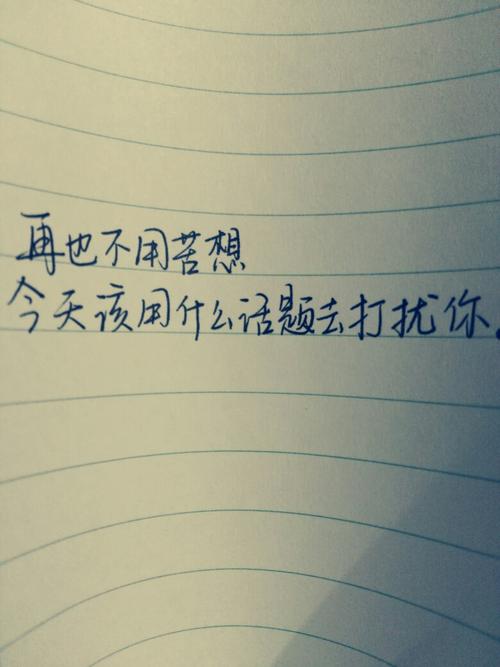 再也不用苦想
今天该用什么话题去打扰你。